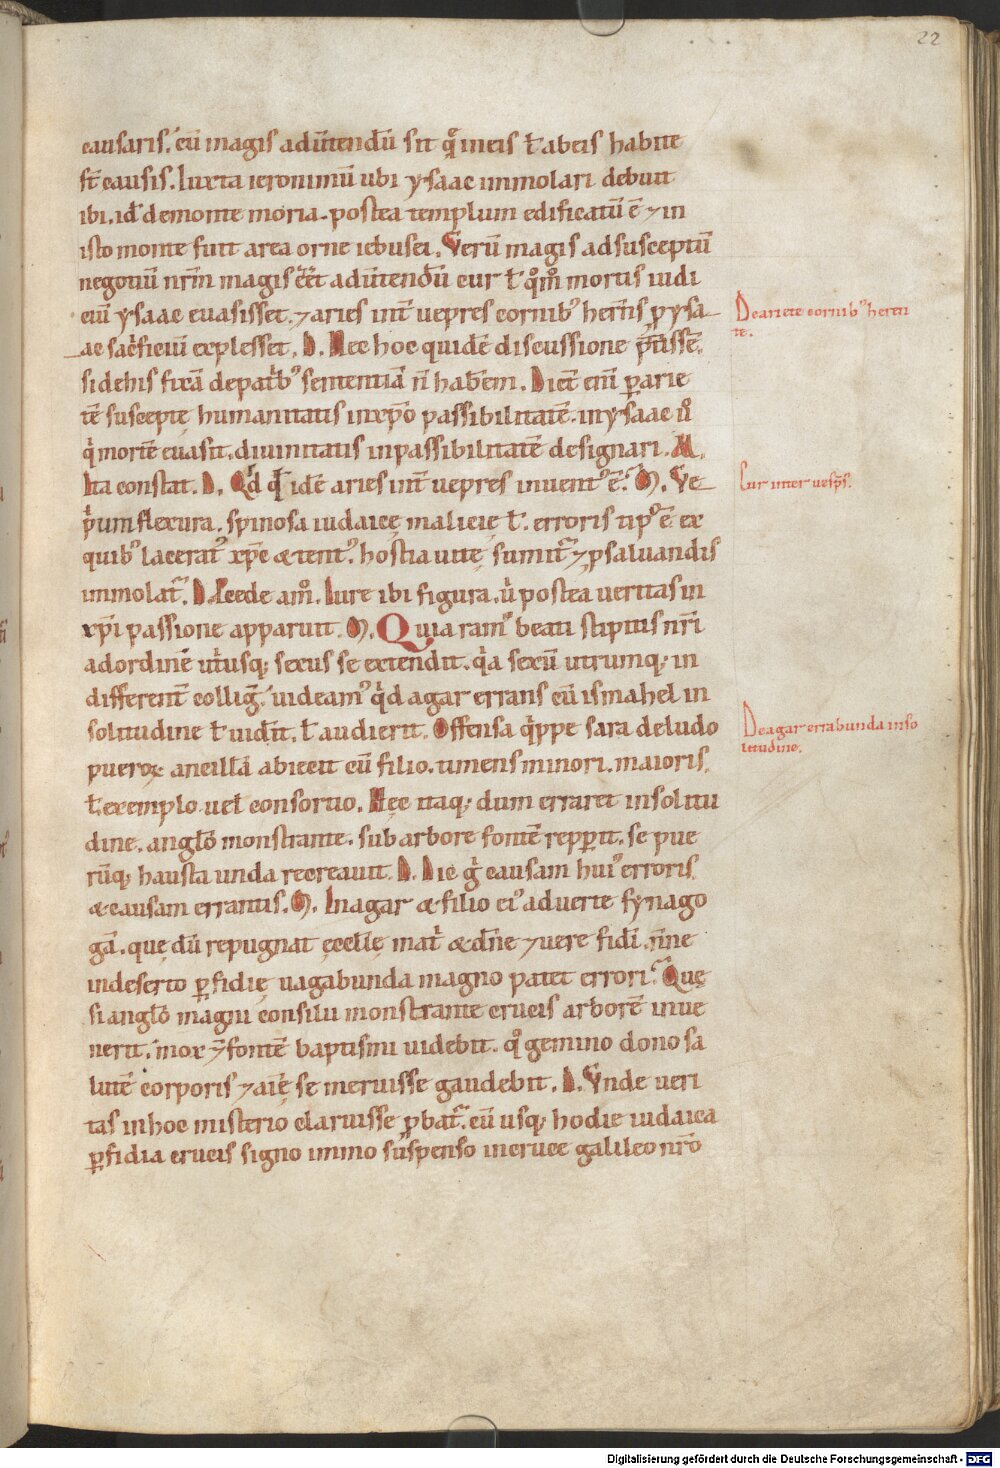 22
causaris. cū magis aduͥtendū sit qͣ meis ł abeis habite
st̄ causis. Iuxta ieronimū ubi ysaac immolari debuit
ibi. id̄ demonte moria. postea templum edificatū ē ⁊ in
isto monte fuit area orne iebusei. Verū magis adsusceptū
negotiū nr̄m magis eēt aduͥtendū cur ł qͦmͦ mortis iudi
ciū ysaac euasisset. ⁊ aries int̄ uepres cornibꝰ herēs ꝓ ysa
De ariete cornibꝰ heren
te.
ac sacͥficiū explesset. D. Nec hoc quidē discussione
si dehis fixā depatͥbꝰ sententiā ñ habem. Dicēt enī ꝑ arie
tē susceptę humanitatis inxp̄o passibilitatē. in ysaac uͦ
qͥ mortē euasit. diuinitatis inpassibilitatē designari. M.
Ita constat. D. Qd̄ idē aries int̄ uepres inuentꝰ ē. M. Ve
Cur inter uesp̄s.
pͥum flexura. spinosa iudaicę malicię ł erroris tipꝰ ē ex
quibꝰ laceratꝰ xp̄c & tentꝰ. hostia uitę sumit̄ ⁊ ꝓ saluandis
immolat̄. D. Accede amͦ. Iure ibi figura. uͥ postea ueritas in
xp̄i passione apparuit. M. Quia ramꝰ beati stipitis nr̄i
adordinē utͥusqꝫ sexus se extendit. qͥa sexū utrumqꝫ in
different̄ colliḡ. uideamꝰ qͥd agar errans cū ismahel in
solitudine ł uid̄it. ł audierit. Offensa qͥppe sara deludo
De agar errabunda inso
litudine.
pueroꝝ ancillā abiecit cū filio. timens minori. maioris
ł exemplo uel consortio. Hęc itaqꝫ dum erraret insolitu
dine. anglō monstrante. sub arbore fontē repꝑit. se pue
rūqꝫ hausta unda recreauit. D. Dic gͥ causam huiꝰ erroris
& causam errantis. M. In agar & filio eiꝰ aduerte synago
gā. quę dū repugnat ęcclīę matͥ & dn̄e ⁊ uere fidī.
indeserto ꝑfidię uagabunda magno patet errori. Quę
si anglō magni consilii monstrante crucis arborē inue
nerit. mox ⁊ fontē baptismi uidebit. qͦ gemino dono sa
lutē corporis ⁊ aīę se meruisse gaudebit. D. Vnde ueri
tas inhoc misterio claruisse ꝓbat̄. cū usqꝫ hodie iudaica
ꝑfidia crucis signo immo suspenso incruce galileo nr̄o
Digitalisierung gefördert durch die Deutsche Forschungsgemeinschaft - DFG